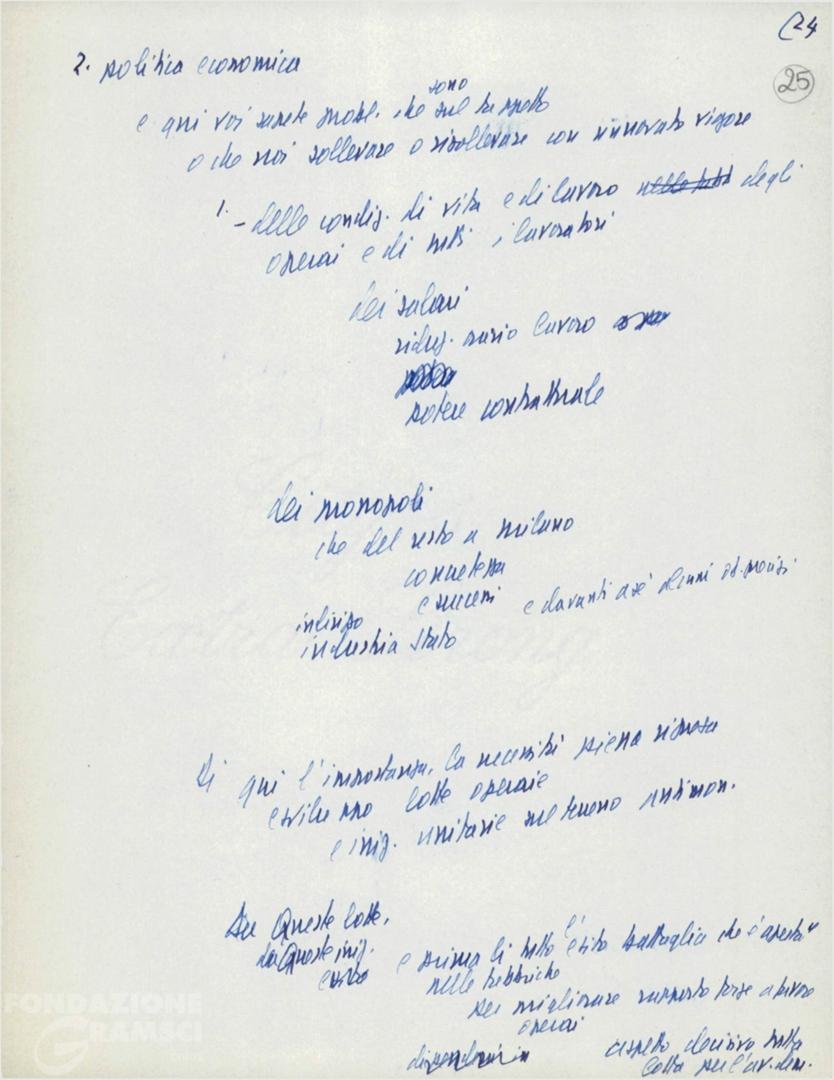 24
25
2. politica economica
e qui voi sapete probl. che sono sul tappeto
o che noi sollevare o risollevare con rinnovato vigore
1. - delle condiz. di vita e di lavoro degli
operai e di tutti i lavoratori
dei salari
riduz. orario lavoro
potere contrattuale
dei monopoli
che del resto a milano
concretezza
e successi e davanti a sé alcuni ob. precisi
industria Stato
Di qui l'importanza, la necessità piena ripresa
e sviluppo lotte operaie
e iniz. unitarie sul terreno antimon.
Da Queste lotte,
da Queste iniz.
e prima di tutto l'esito battaglia che è aperta
nelle fabbriche
per migliorare rapporto forze a favore
operai
aspetto decisivo della
lotta per l'av. dem.
FONDAZIONE
GRAMSCI